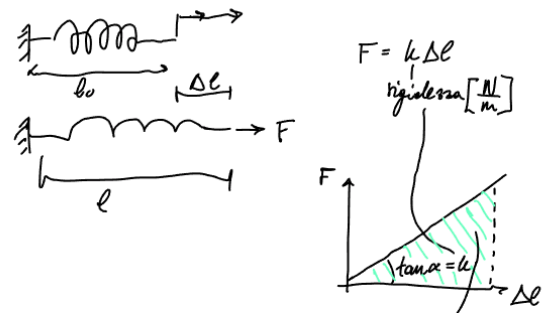 l₀
Δl
F
l
F = k Δl
rigidezza [N/m]
F
tanα = k
Δl